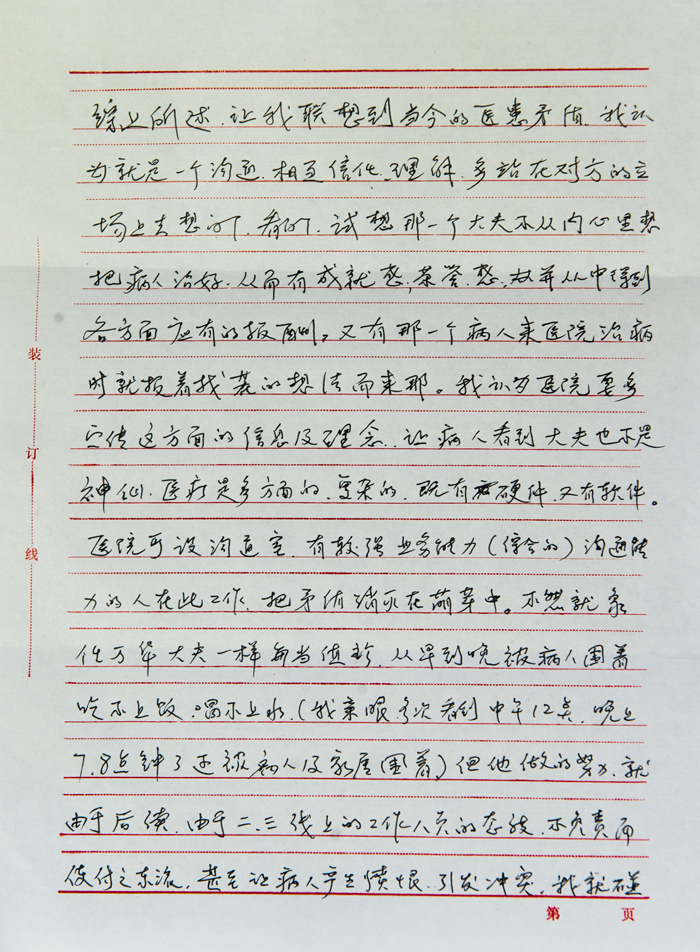 综上所述,让我联想到当今的医患矛盾,我认
为就是一个沟通.相互信任.理解.多站在对方的立
场上去想问.看问.试想那一个大夫不从内心里想
把病人治好.从而有成就感,荣誉.感,并从中得到
各方面应有的报酬。又有那一个病人来医院治病
时就报着找 的想法而来那。我认为医院要多
宣传这方面的信息及理念.让病人看到大夫也不是
神仙.医疗是多方面的.复杂的.既有硬件.又有软件。
医院可设沟通室.有较强业务能力(综合的)沟通能
力的人在此工作.把矛盾消灭在萌芽中。不然就象
任万华大夫一样每当值 .从早到晚被病人围着
吃不上饭.喝不上水.(我亲眼多次看到中午12点.晚上
7.8点钟了还被病人及家属围着)但他做的努力.就
由于后续.由于二.三线上的工作人员的态度.不负责而
使付之东流.甚至让病人产生愤恨.引发冲突.我就
装
订
线
第 页